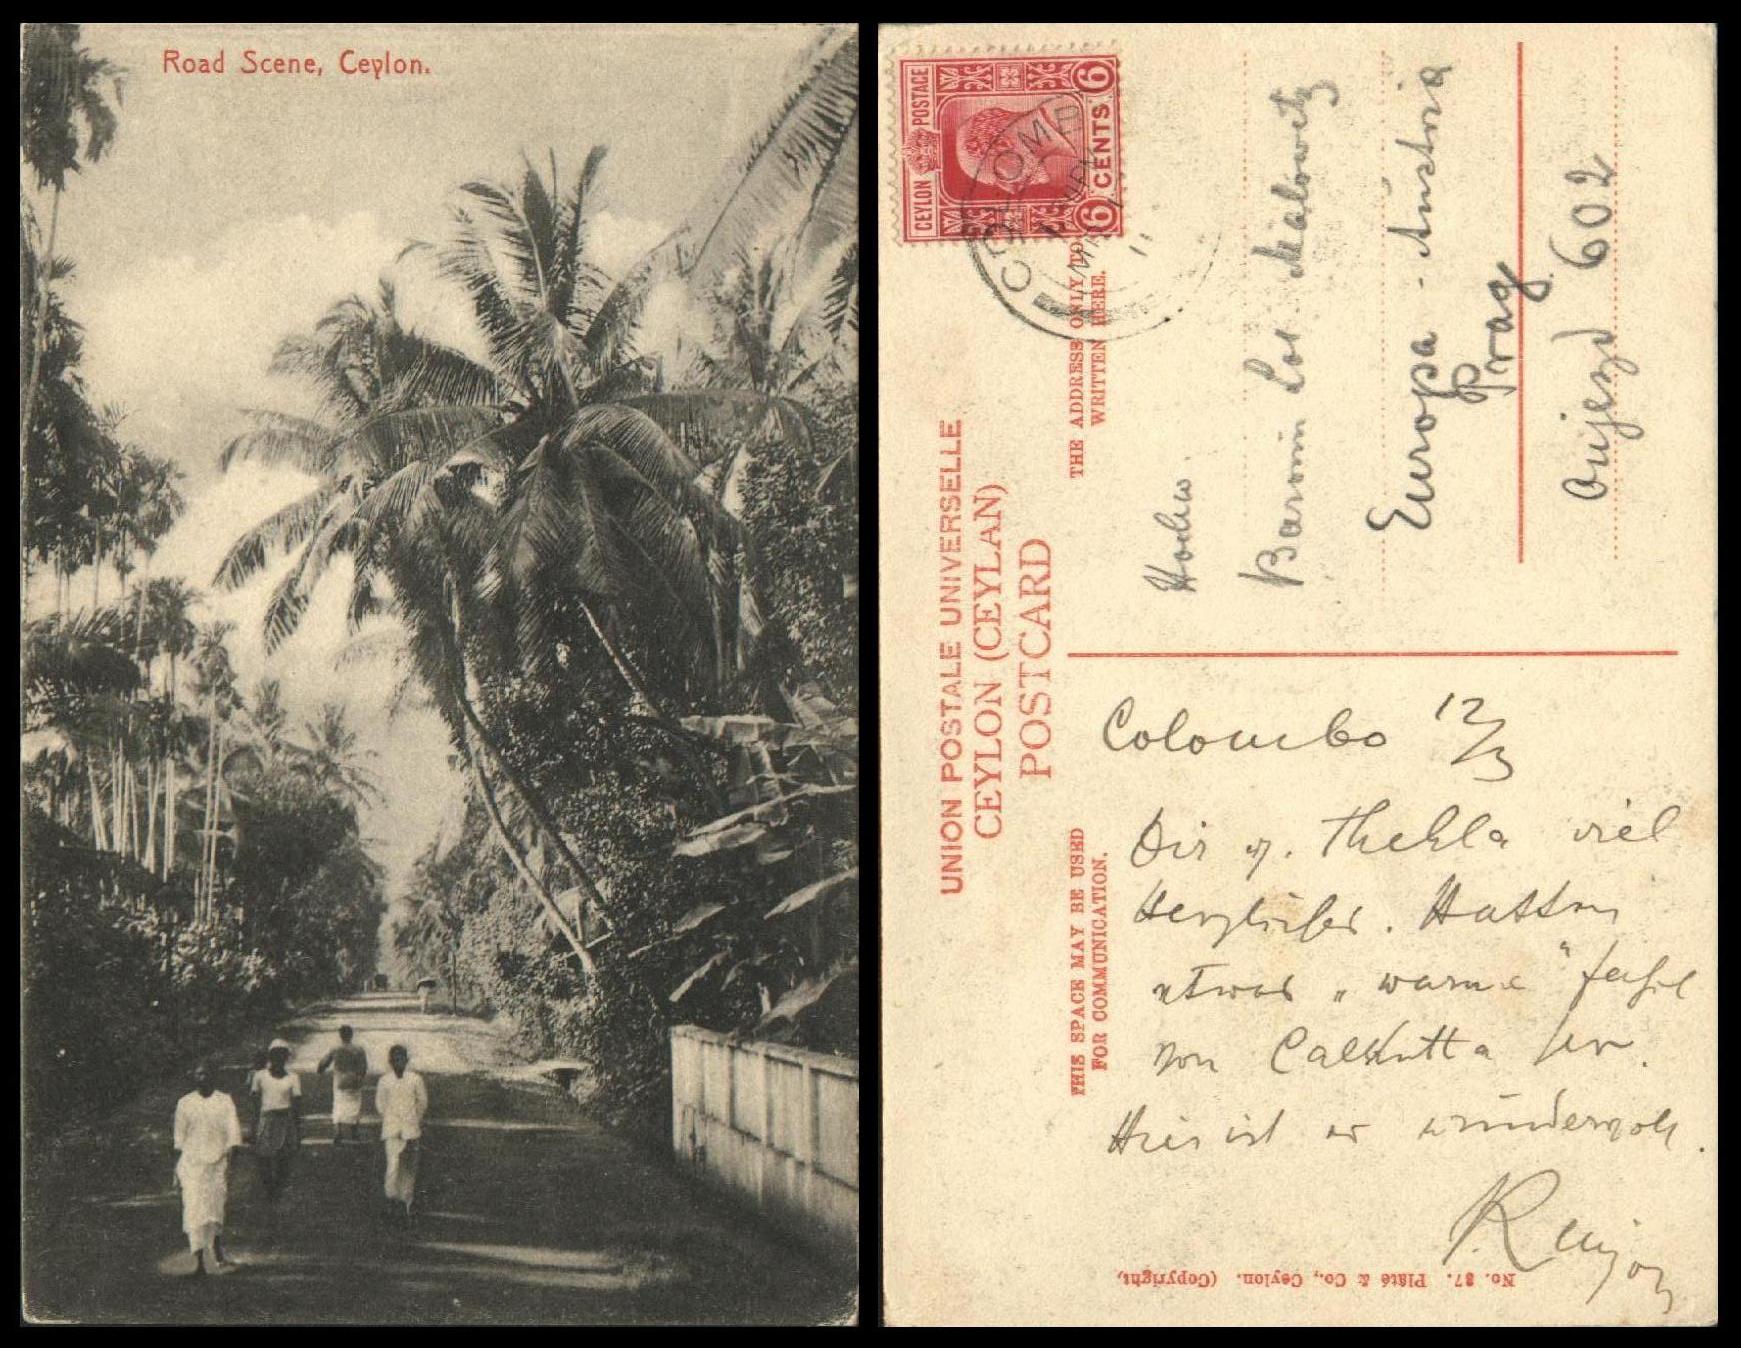 Road Scene, Ceylon.
CEYLON POSTAGE
6 CENTS 6
COLOMBO
UNION POSTALE UNIVERSELLE
CEYLON (CEYLAN)
POSTCARD
THE ADDRESS ONLY TO
WRITTEN HERE.
THIS SPACE MAY BE USED
FOR COMMUNICATION.
Baronin Lot
Europa - Austria
Prag
Aujezd 602
Colombo 12/3
Dir u. Thekla viel
Herzliches. Hatten
etwas "warme"
von Calkutta her.
Hier ist es wundervoll.
No. 37. Plâté & Co., Ceylon. (Copyright,